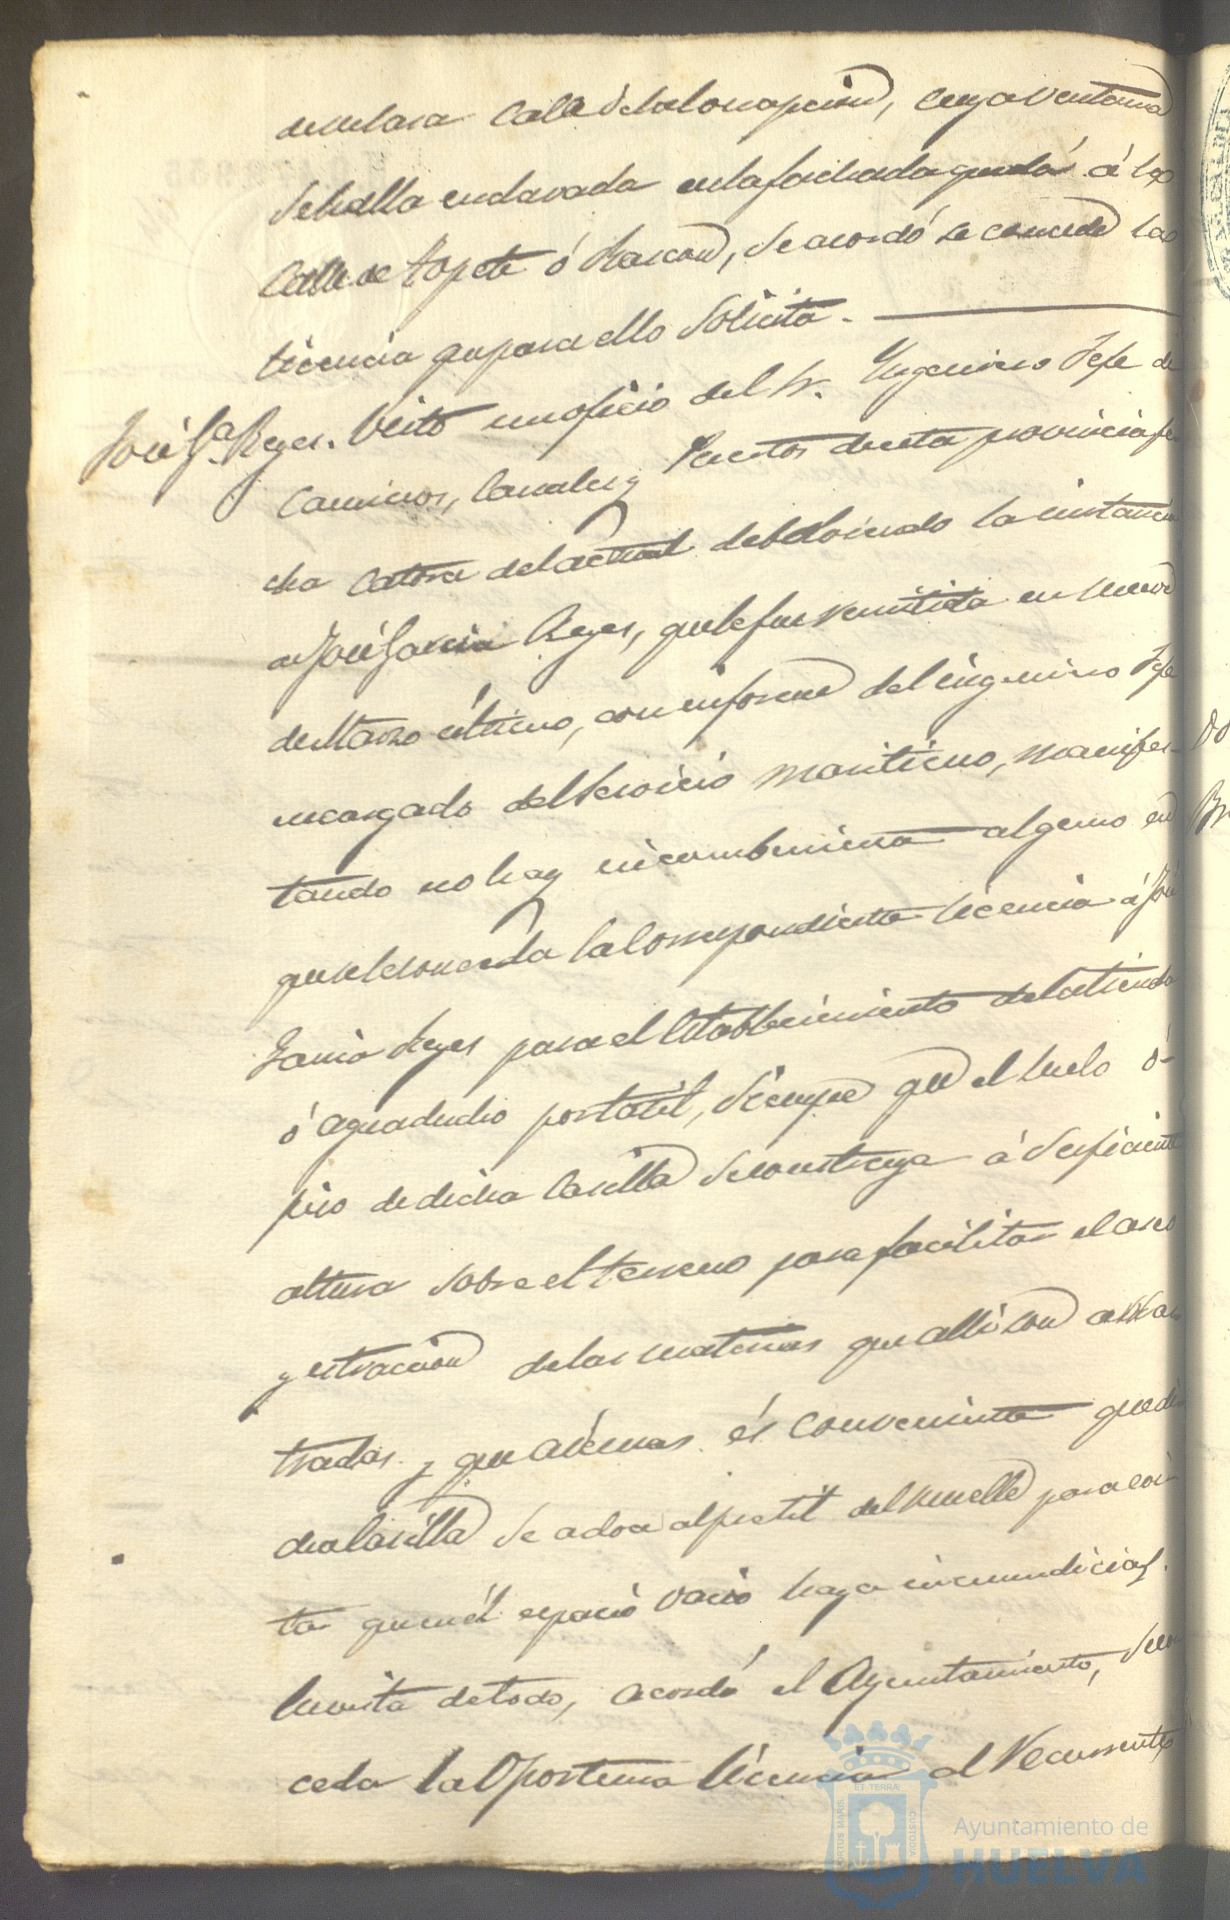 en su casa Calle de la Concepcion, cuya ventana
se halla enclavada en la fachada que dá á la
Calle de Topete ó Rascon, se acordó se conceda la
licencia que para ello solicita.
José Gª Reyes. Visto un oficio del Sr. Ingeniero Jefe de
Caminos, Canales y Puertos de esta provincia fe
cha catorce del actual debolviendo la instancia
de José Garcia Reyes, que le fue remitida en nueve
de Marzo último, con informe del ingeniero Jefe
encargado del Servicio maritimo, manifes-
tando no hay incombeniente alguno en
que se le conceda la correspondiente licencia á José
Garcia Reyes para el establecimiento de la tienda
ó aguaducho portatil, siempre que el suelo ó
piso de dicha Casilla se construya á suficiente
altura sobre el terreno para facilitar el aseo
y estraccion de las materias que alli son arras
tradas y que ademas és conveniente que di
cha Casilla se adose al pretil del Muelle para evi
tar que en él espacio vacio haya inmundicias.
En vista de todo, acordó el Ayuntamiento, se con
ceda la Oportuna licencia al recurrente
Ayuntamiento de
HUELVA
PORTUS MARIS
ET TERRÆ
CUSTODIA